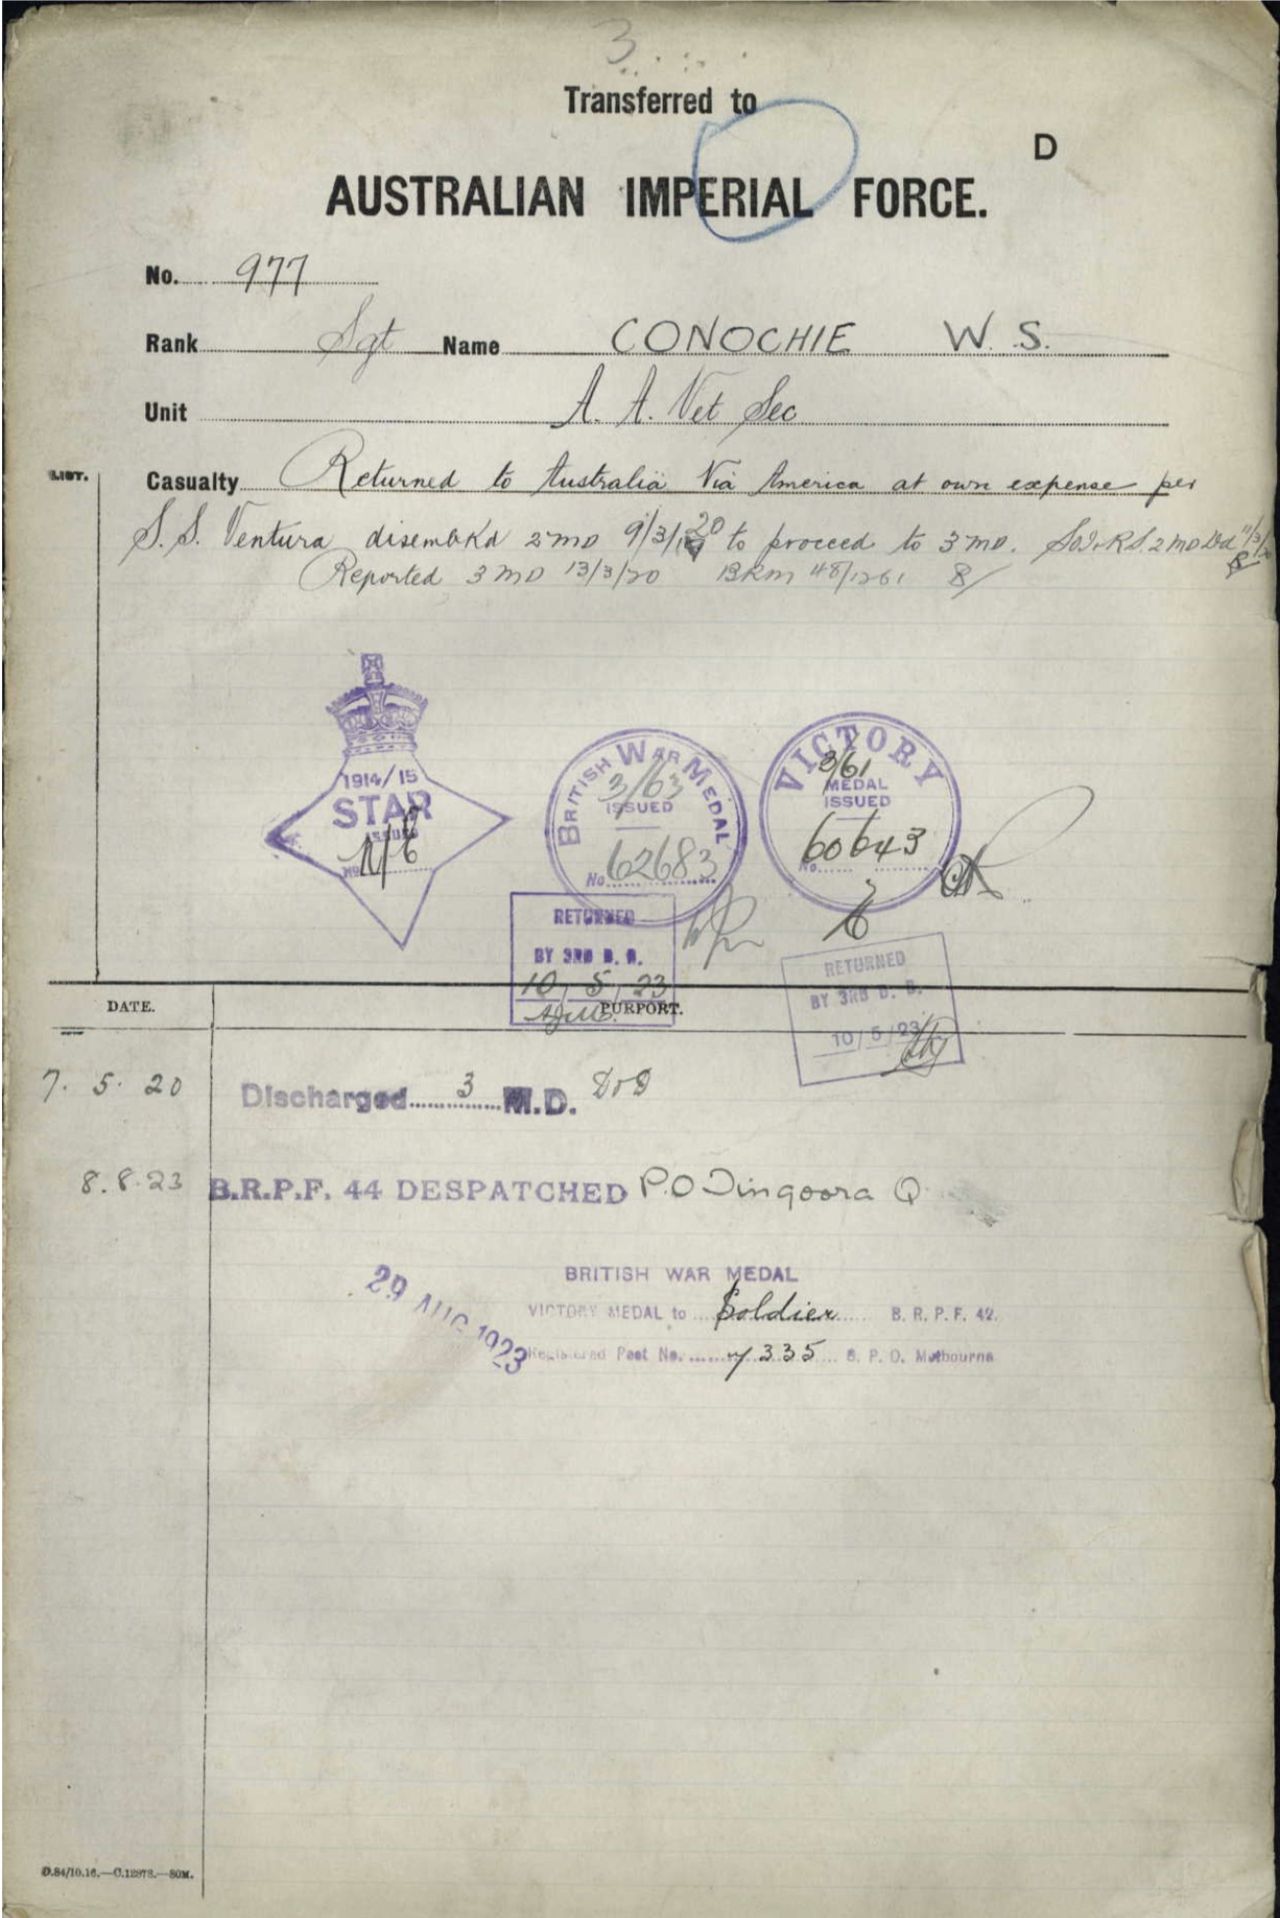 3
Transferred to
D
AUSTRALIAN IMPERIAL FORCE.
No. 977
Rank Sgt Name CONOCHIE W. S.
Unit A. A. Vet Sec
LIST.
Casualty Returned to Australia Via America at own expense per
S.S. Ventura disembkd 2 MD 9/3/20 to proceed to 3 MD. 2 MD
Reported 3 MD 13/3/20 BRM 48/1261 8/
1914/15
STAR
ISSUED
No N/E
BRITISH WAR MEDAL
3/63
ISSUED
No 62683
VICTORY
3/61
MEDAL
ISSUED
No. 60643
RETURNED
BY 3RD B. R.
10/5/23
RETURNED
BY 3RD B. R.
10/5/23
DATE.
PURPORT.
7. 5. 20 Discharged 3 M.D.
8.8.23 B.R.P.F. 44 DESPATCHED P.O Tingoora Q
29 AUG 1923
BRITISH WAR MEDAL
VICTORY MEDAL to Soldier B. R. P. F. 42.
Registered Post No. 7335 G. P. O. Melbourne
D.84/10.16.—C.12978.—80M.